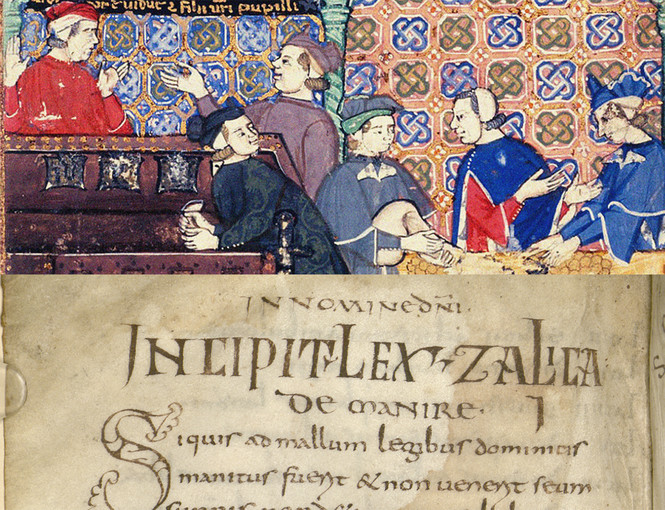 pupilli
IN NOMINE DNI
INCIPIT LEX ZALICA
DE MANIRE. I
Si quis ad mallum legibus dominicis
manitus fuerit & non uenerit seum